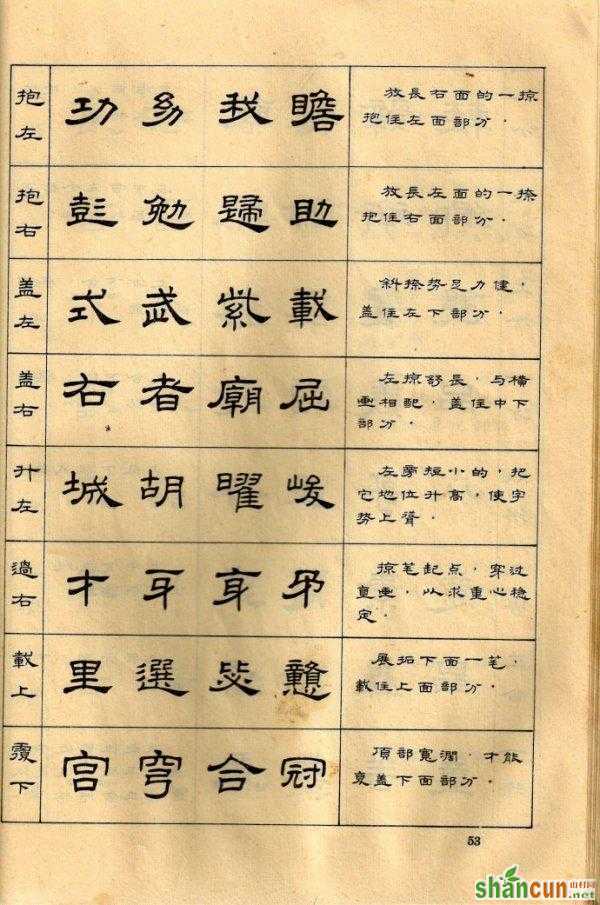 抱左
功 幼 我 瞻
放長右面的一掠
抱住左面部分．
抱右
彭 勉 歸 助
放長左面的一捺
抱住右面部分．
盖左
式 武 紫 載
斜捺勢足力健，
盖住左下部分．
盖右
右 者 廟 屈
左掠舒長，与橫
画相配，盖住中下
部分．
升左
城 胡 曜 峻
左旁短小的，把
它地位升高，使字
势上聳．
過右
才 牙 享
掠笔起点，穿过
直画，以求重心稳
定．
載上
里 選 毖 戇
展拓下面一笔，
載住上面部分．
覆下
宫 穹 合 冠
頂部寬濶，才能
裹盖下面部分．
53
shancun
山村网
.net